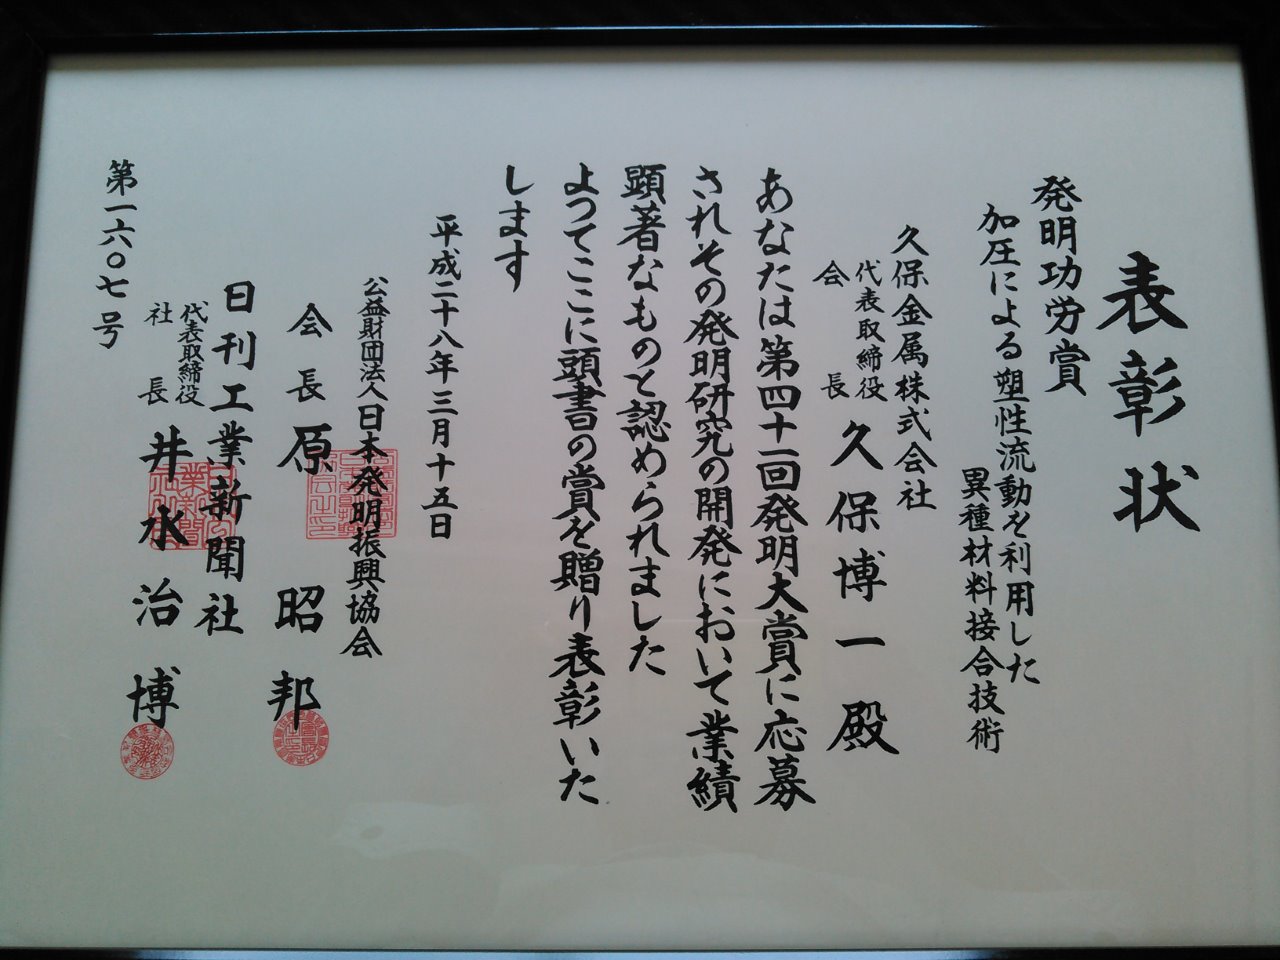 表彰状
発明功労賞
加圧による塑性流動を利用した
異種材料接合技術
久保金属株式会社
代表取締役
会長
久保博一殿
あなたは第四十一回発明大賞に応募
されその発明研究の開発において業績
顕著なものと認められました
よつてここに頭書の賞を贈り表彰いた
します
平成二十八年三月十五日
公益財団法人日本発明振興協会
会長原昭邦
日刊工業新聞社
代表取締役
社長
井水治博
第一六〇七号